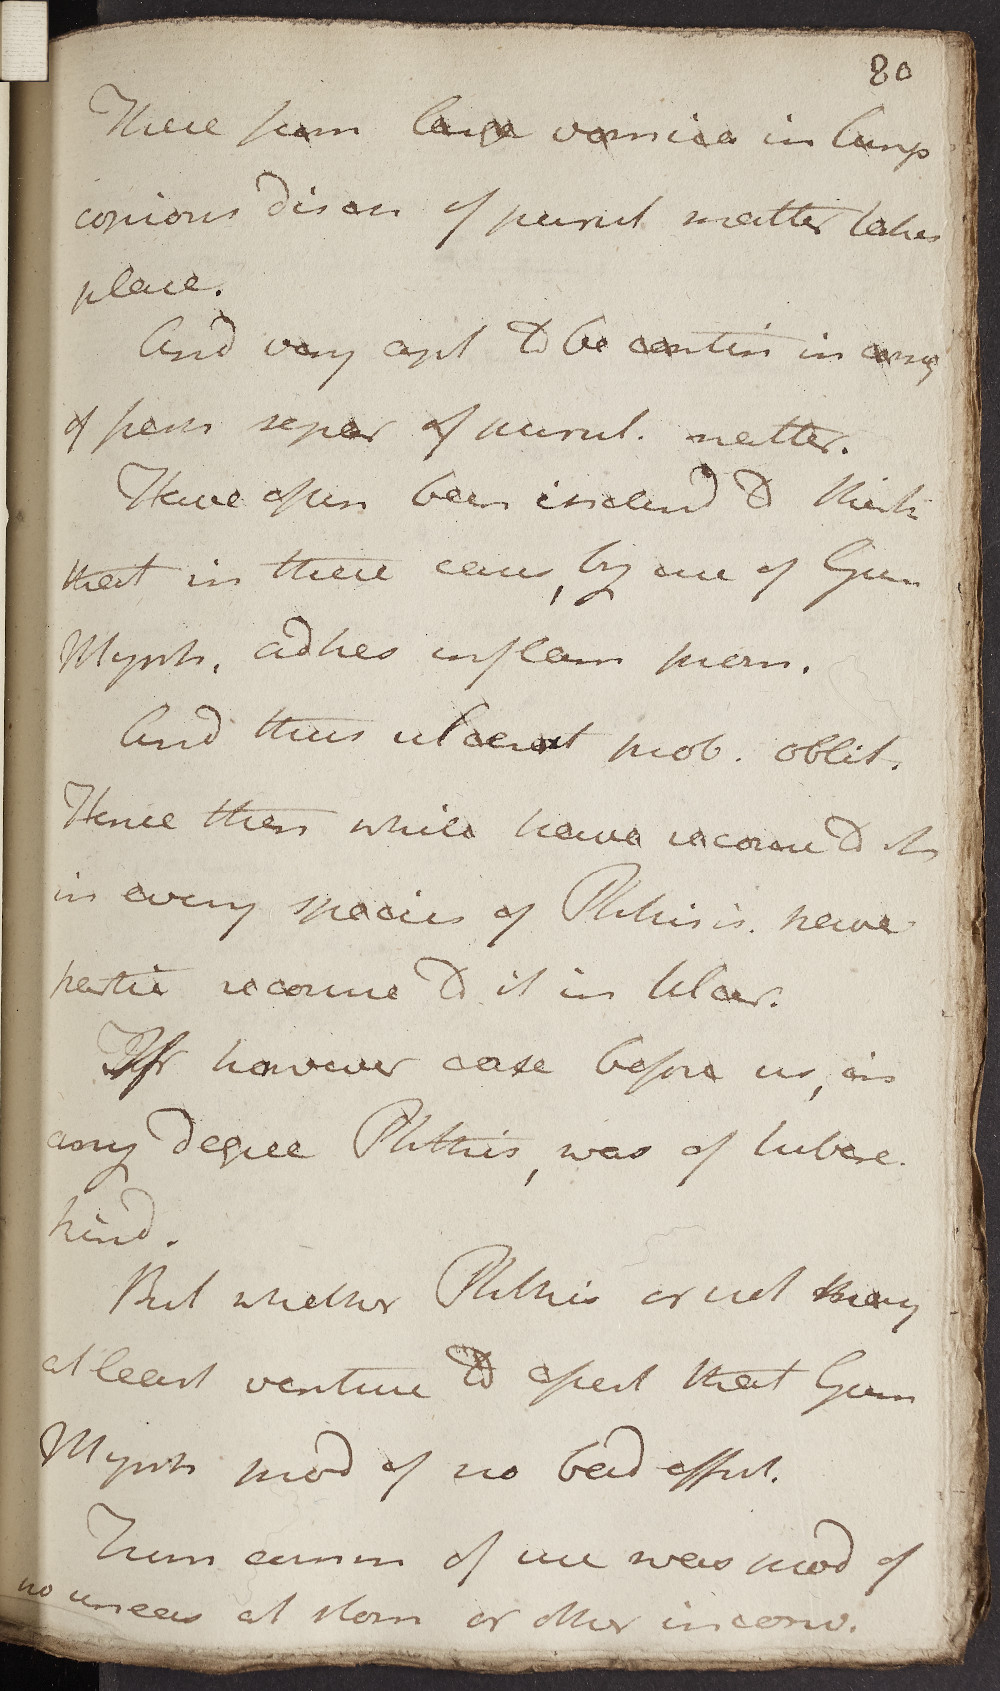 80
There from large vomica in lungs
copious discn of purul matter takes
place.
And very apt to be contin in consq
of pecur separ of purul. matter.
Have often been inclend to think
that in these cases, by use of Gum
Myrrh, adhes inflam prom.
And thus ulcerat prob. oblit.
Hence then while have recours to its
in every species of Phthisis. have
partic recourse to it in Ulcer.
If however case before us, in
any degree Phthis, was of tuberc.
kind.
But whether Phthis or not may
at least venture to assert that Gum
Myrrh prod of no bad effect.
From comm of use was prod of
no uneas at stom or other inconv.